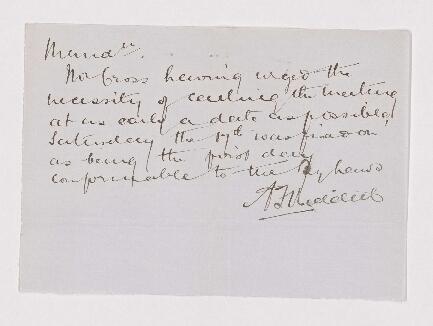 Memdm.
Mr Cross having urged the
necessity of calling the meeting
at as early a date as possible,
Saturday the 17th was fixed on
as being the first day
conformable to the Byelaws